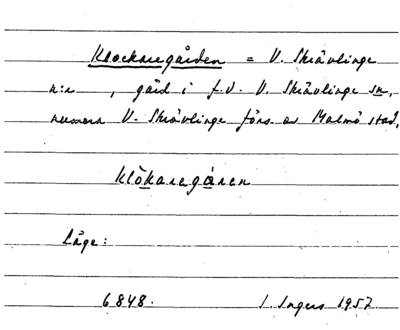 Klockaregården = V. Skrävlinge
n:r , gård i f.d. V. Skrävlinge sn,
numera V. Skrävlinge förs. av Malmö stad.
Klökaregåren
Läge:
6848. I. Ingers 1957.